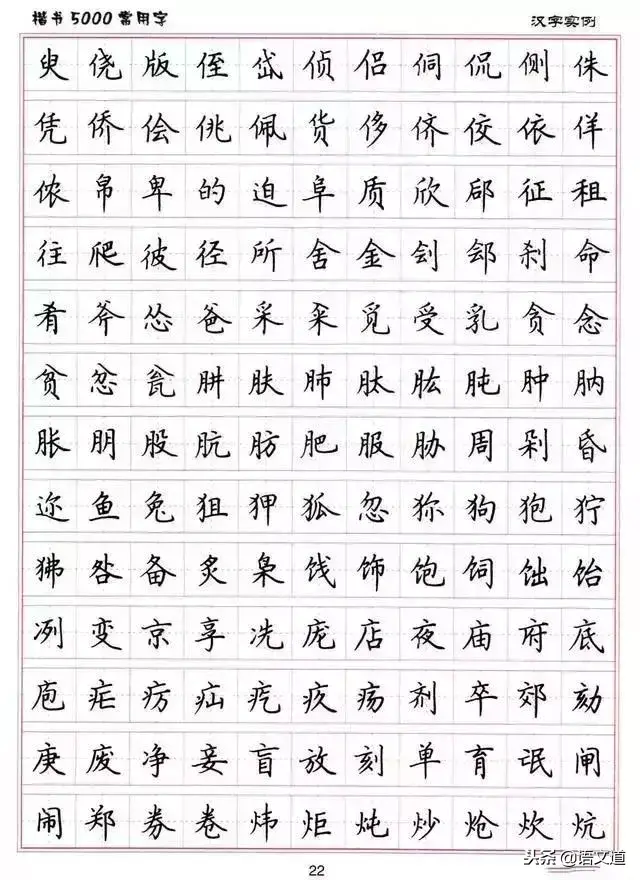 楷书5000常用字 汉字实例
臾 侥 版 侄 岱 侦 侣 侗 侃 侧 侏
凭 侨 侩 佻 佩 货 侈 侪 佼 依 佯
侬 帛 卑 的 迫 阜 质 欣 郈 征 租
往 爬 彼 径 所 舍 金 刽 郐 刹 命
肴 斧 怂 爸 采 籴 觅 受 乳 贪 念
贫 忿 瓮 肼 肤 肺 肽 肱 肫 肿 肭
胀 朋 股 肮 肪 肥 服 胁 周 剁 昏
迩 鱼 兔 狙 狎 狐 忽 狝 狗 狍 狞
狒 咎 备 炙 枭 饯 饰 饱 饲 饳 饴
冽 变 京 享 冼 庞 店 夜 庙 府 底
庖 疟 疠 疝 疙 疚 疡 剂 卒 郊 劾
庚 废 净 妾 盲 放 刻 单 育 氓 闸
闹 郑 券 卷 炜 炬 炖 炒 炝 炊 炕
22
头条@语文道